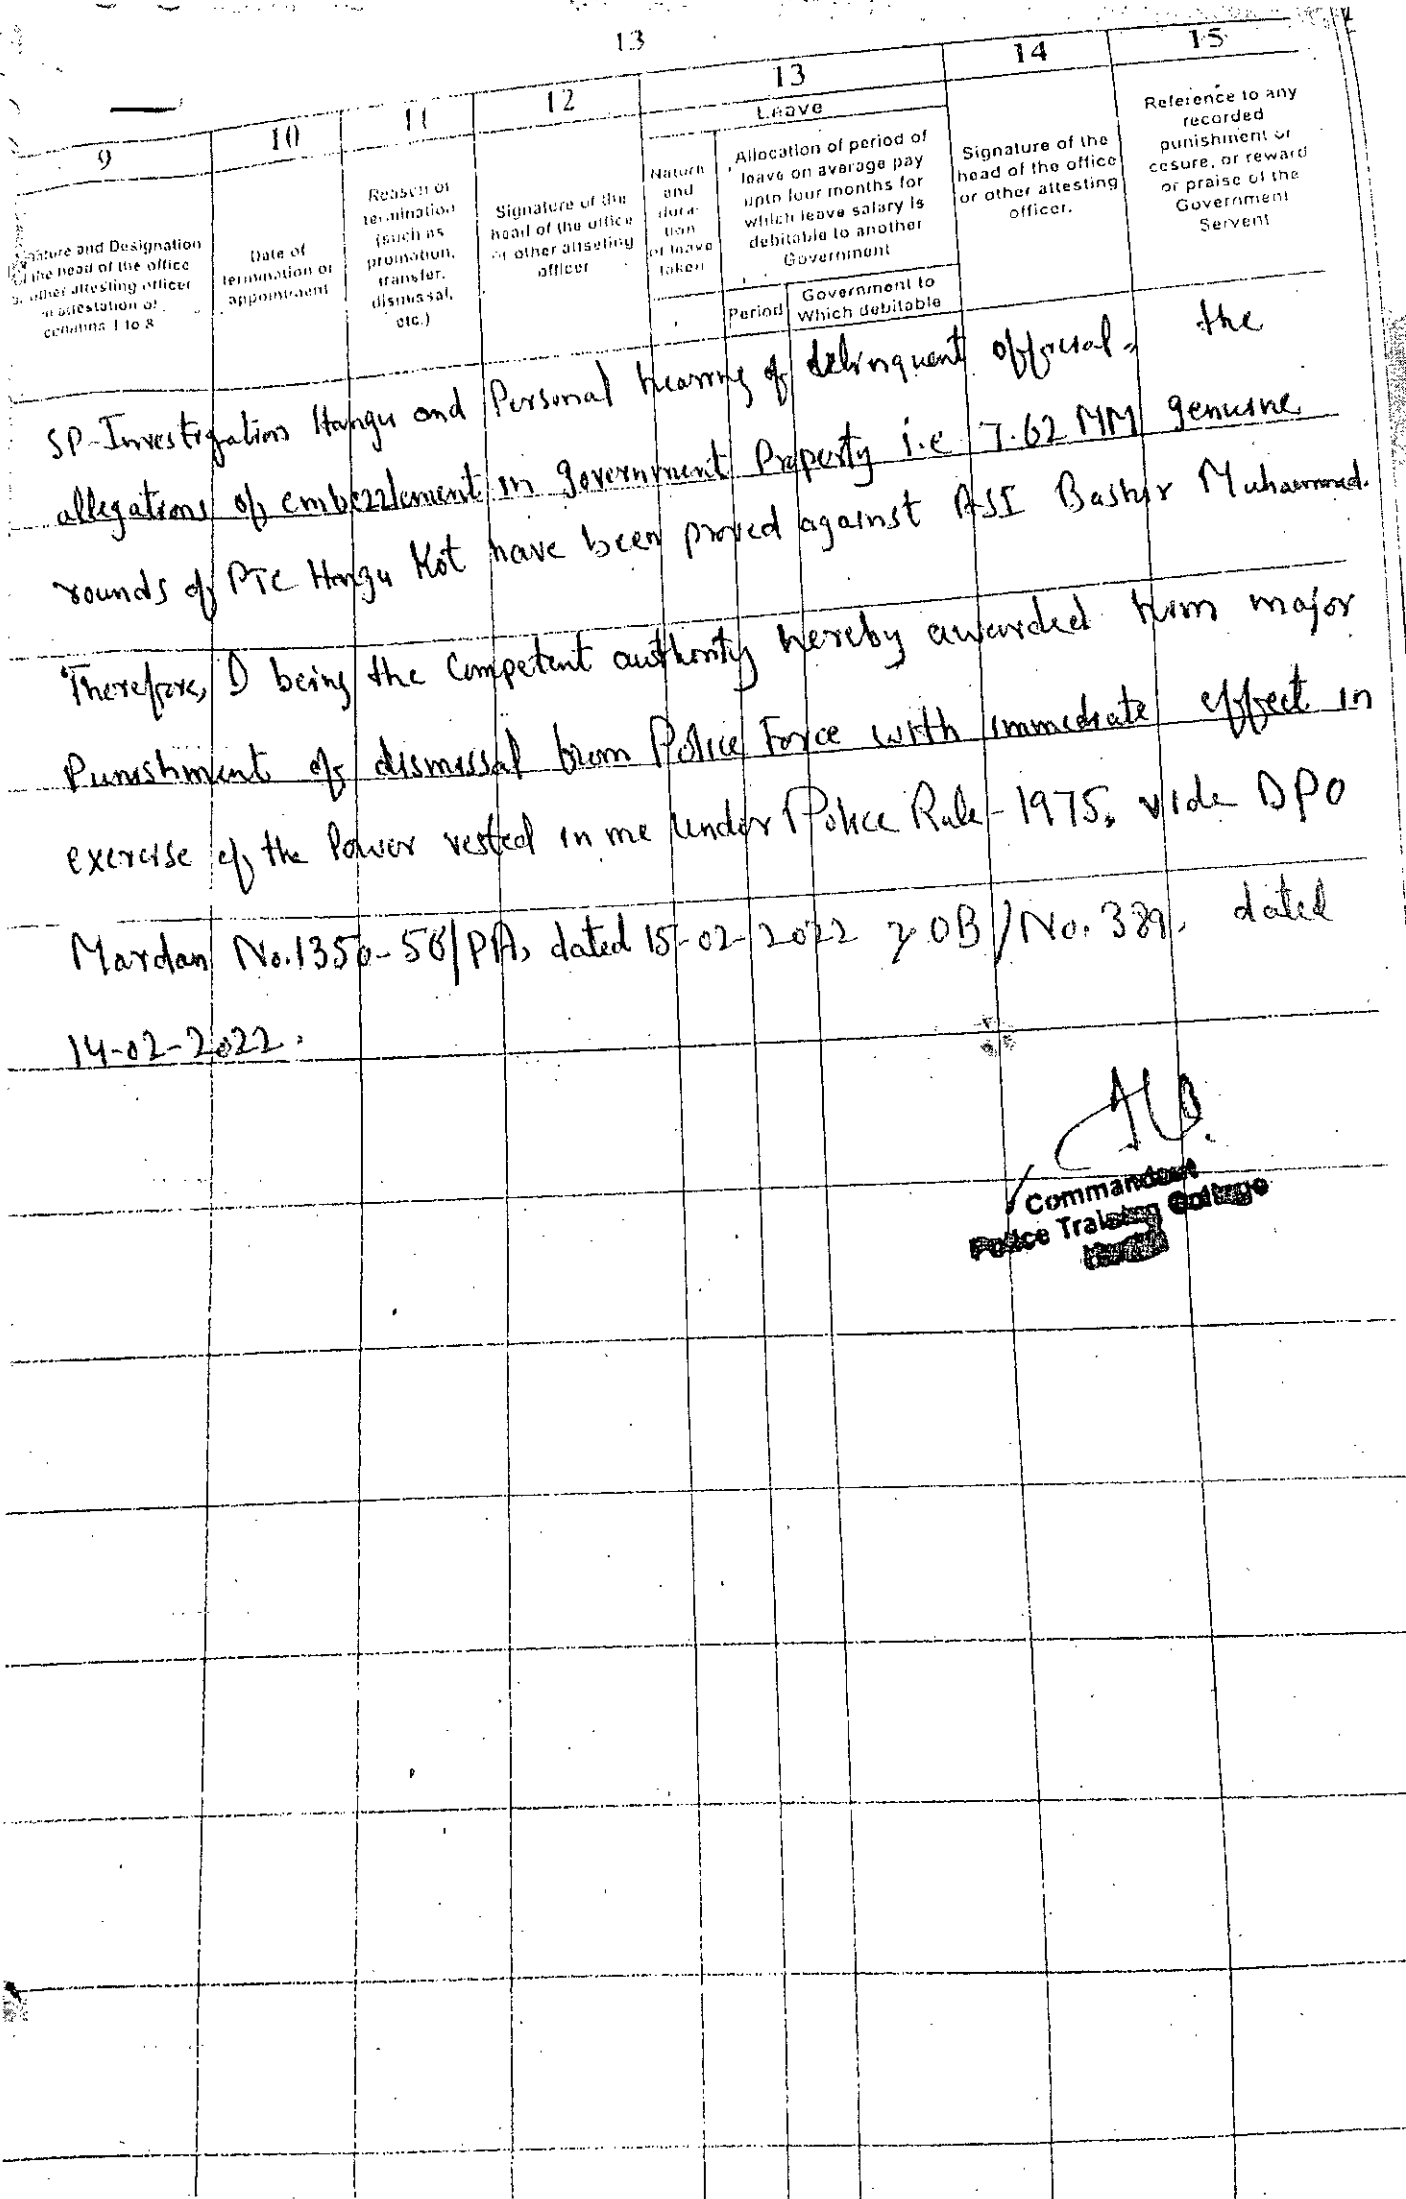 13
9
10
11
12
13
Leave
14
15
Signature and Designation
of the head of the office
or other attesting officer
in attestation of
columns 1 to 8
Date of
termination or
appointment
Reason of
termination
(such as
promation,
transfer,
dismissal,
etc.)
Signature of the
head of the office
or other attseting
officer
Nature
and
dura-
tion
of leave
taken
Allocation of period of
leave on average pay
upto four months for
which leave salary is
debitable to another
Government
Period
Government to
Which debitable
Signature of the
head of the office
or other attesting
officer.
Reference to any
recorded
punishment or
cesure, or reward
or praise of the
Government
Servent
SP-Investigation Hangu and Personal hearing of delinquent official, the
allegations of embezzlement in government Property i.e 7.62 MM genuine
rounds of PTC Hangu Kot have been proved against ASI Bashir Muhammad.
Therefore, I being the Competent authority hereby awarded him major
Punishment of dismissal from Police Force with immediate effect in
exercise of the Power vested in me under Police Rule-1975, vide DPO
Mardan No.1350-56/PA, dated 15-02-2022 OB/No. 389, dated
14-02-2022.
Commandant
Police Training College